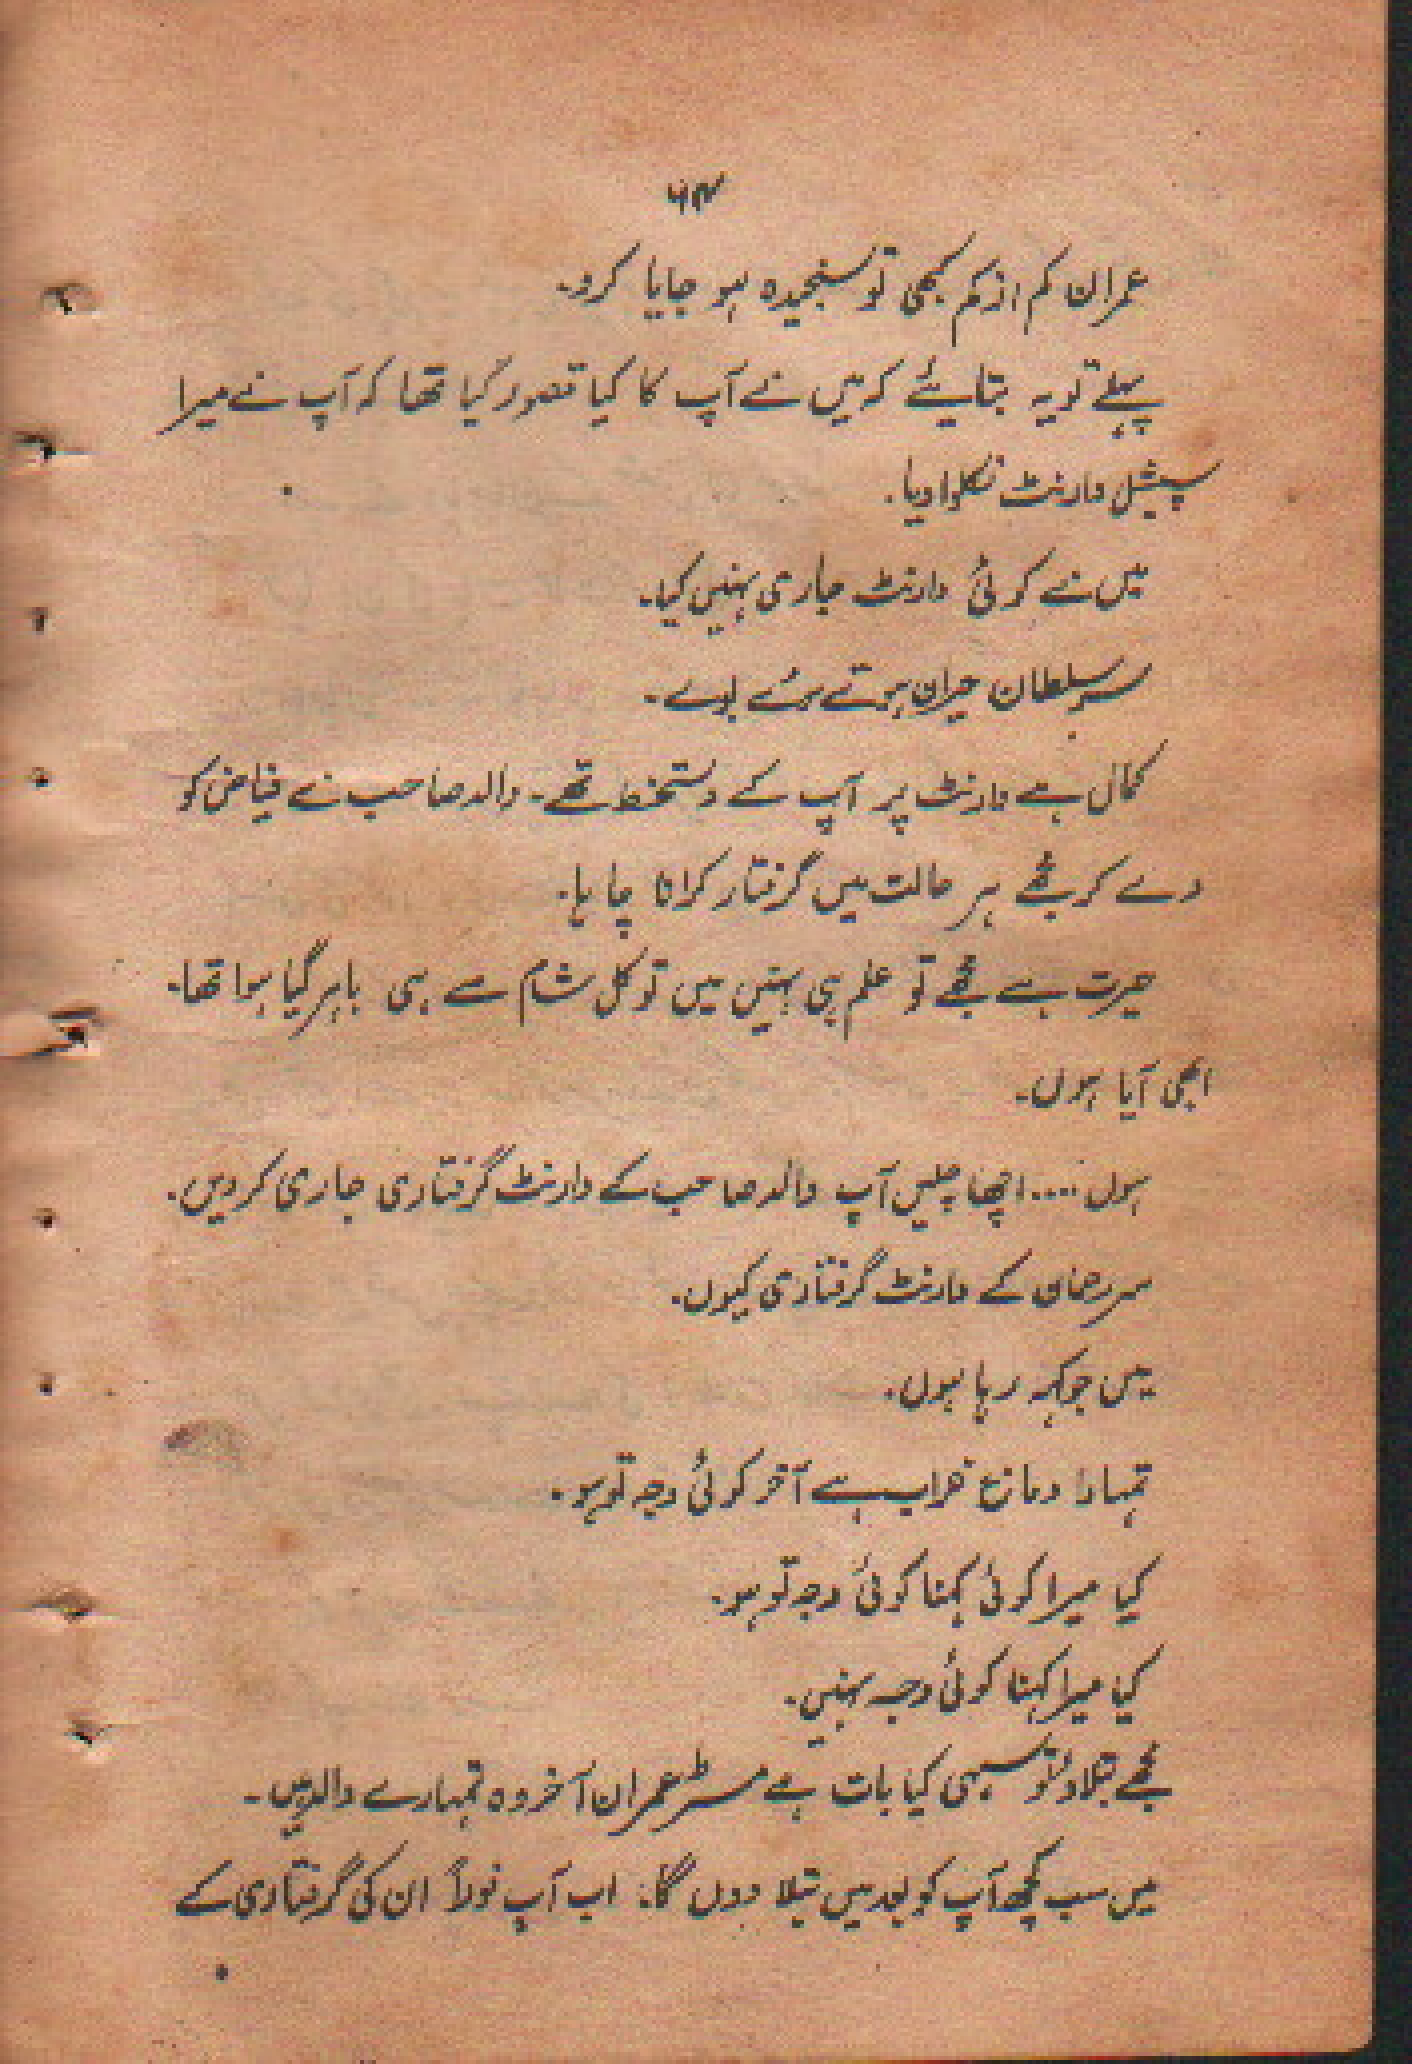 ۶۴
عمران کم از کم کبھی تو سنجیدہ ہو جایا کرو۔
پہلے تو یہ بتایئے کہ میں نے آپ کا کیا قصور کیا تھا کہ آپ نے میرا
سپیشل وارنٹ نکلوا دیا۔
میں نے کوئی وارنٹ جاری نہیں کیا۔
سر سلطان حیران ہوتے ہوئے بولے۔
کمال ہے وارنٹ پر آپ کے دستخط تھے۔ والد صاحب نے فیاض کو
دے کر مجھے ہر حالت میں گرفتار کرانا چاہا۔
حیرت ہے مجھے تو علم ہی نہیں میں تو کل شام سے ہی باہر گیا ہوا تھا۔
ابھی آیا ہوں۔
ہوں .... اچھا چلیں آپ والد صاحب کے وارنٹ گرفتاری جاری کر دیں۔
سر رحمان کے وارنٹ گرفتاری کیوں۔
میں جو کہہ رہا ہوں۔
تمہارا دماغ خراب ہے آخر کوئی وجہ تو ہو۔
کیا میرا کوئی کہنا کوئی وجہ تو ہو۔
کیا میرا کہنا کوئی وجہ نہیں۔
مجھے بتلاؤ تو سہی کیا بات ہے مسٹر عمران آخر وہ تمہارے والد ہیں۔
میں سب کچھ آپ کو بعد میں بتلا دوں گا۔ اب آپ فوراً ان کی گرفتاری کے